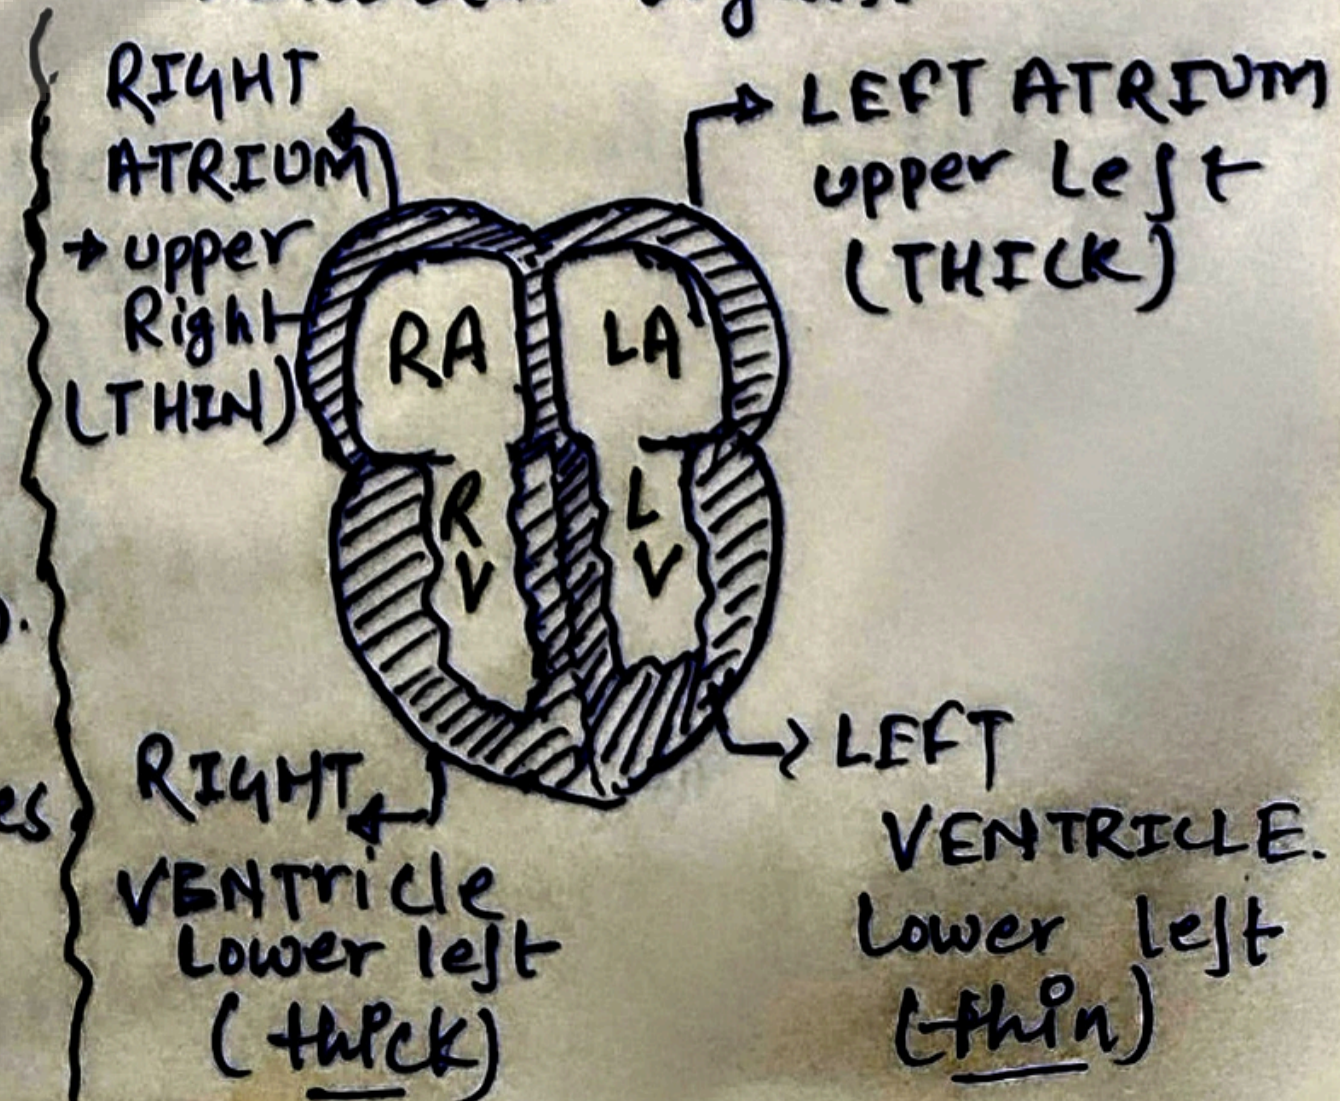 RIGHT
ATRIUM
→ upper
Right
(THIN)
LEFT ATRIUM
upper Left
(THICK)
RA
LA
R
V
L
V
RIGHT
VENTricle
Lower left
(thick)
LEFT
VENTRICLE.
Lower left
(thin)